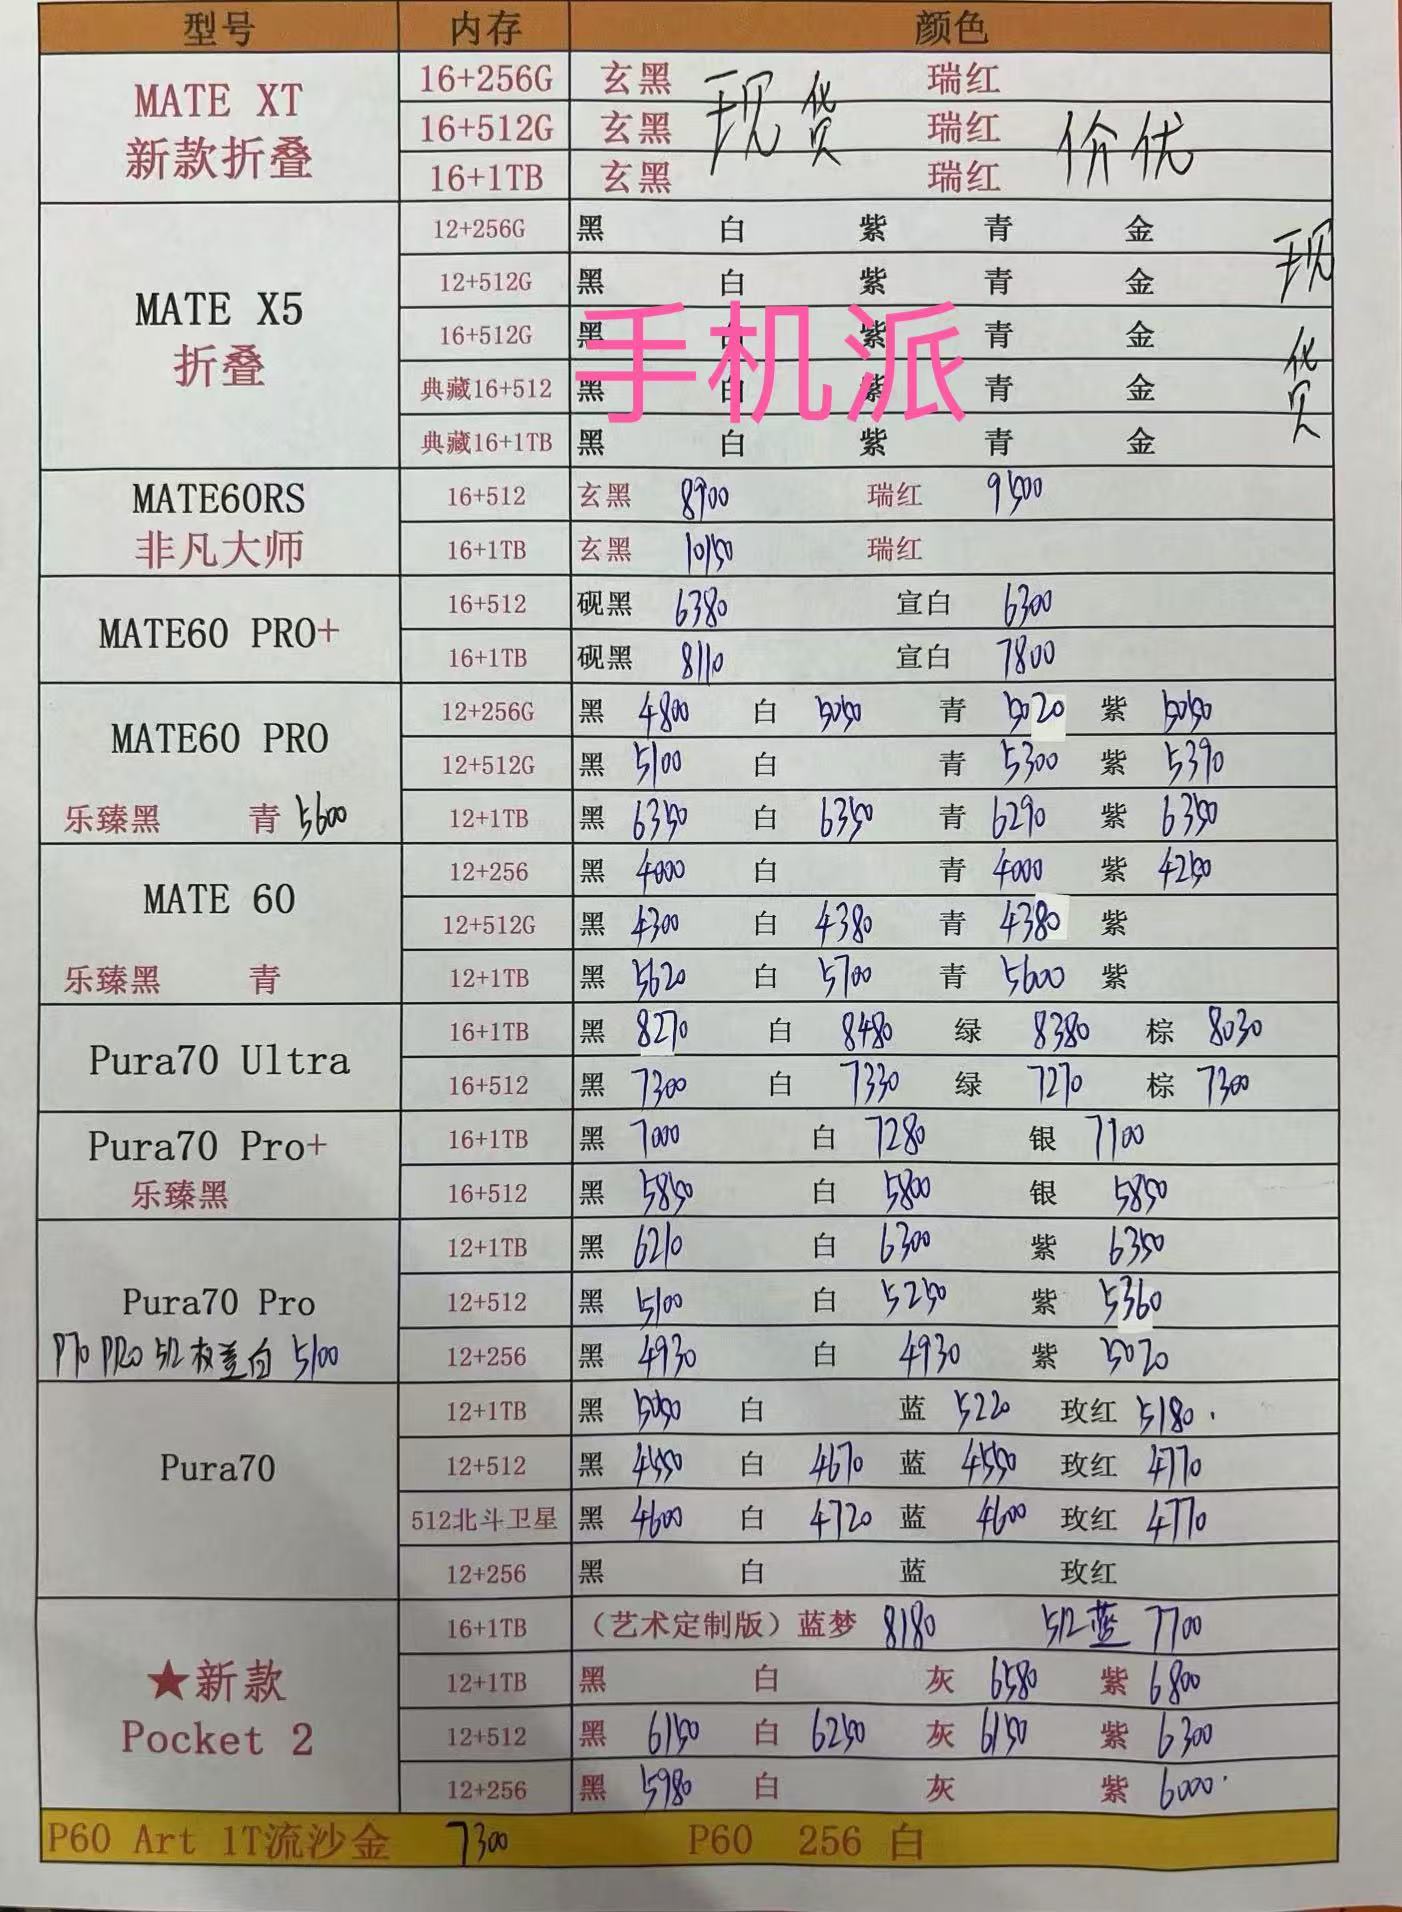 型号 内存 颜色
MATE XT 新款折叠
16+256G 玄黑 瑞红
16+512G 玄黑 瑞红
16+1TB 玄黑 瑞红
现货 价优
MATE X5 折叠
12+256G 黑 白 紫 青 金
12+512G 黑 白 紫 青 金
16+512G 黑 白 紫 青 金
典藏16+512 黑 白 紫 青 金
典藏16+1TB 黑 白 紫 青 金
现货
手机派
MATE60RS 非凡大师
16+512 玄黑 8900 瑞红 9500
16+1TB 玄黑 10150 瑞红
MATE60 PRO+
16+512 砚黑 6380 宣白 6300
16+1TB 砚黑 8110 宣白 7800
MATE60 PRO
12+256G 黑 4800 白 5050 青 5020 紫 5050
12+512G 黑 5100 白 青 5300 紫 5390
乐臻黑 青 5600
12+1TB 黑 6350 白 6350 青 6290 紫 6350
MATE 60
12+256 黑 4000 白 青 4000 紫 4250
12+512G 黑 4300 白 4380 青 4380 紫
乐臻黑 青
12+1TB 黑 5620 白 5700 青 5600 紫
Pura70 Ultra
16+1TB 黑 8270 白 8480 绿 8380 棕 8030
16+512 黑 7300 白 7330 绿 7270 棕 7300
Pura70 Pro+
乐臻黑
16+1TB 黑 7000 白 7280 银 7100
16+512 黑 5850 白 5800 银 5850
Pura70 Pro
P70 PRO 512 权益白 5100
12+1TB 黑 6210 白 6300 紫 6350
12+512 黑 5100 白 5250 紫 5360
12+256 黑 4930 白 4930 紫 5020
Pura70
12+1TB 黑 5050 白 蓝 5220 玫红 5180
12+512 黑 4550 白 4670 蓝 4550 玫红 4770
512北斗卫星 黑 4600 白 4720 蓝 4600 玫红 4770
12+256 黑 白 蓝 玫红
★新款 Pocket 2
16+1TB (艺术定制版)蓝梦 8180 512蓝 7700
12+1TB 黑 白 灰 6580 紫 6800
12+512 黑 6150 白 6250 灰 6150 紫 6300
12+256 黑 5980 白 灰 紫 6000
P60 Art 1T流沙金 7300 P60 256 白